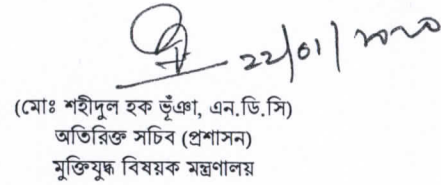 22/01/২০২০
(মোঃ শহীদুল হক ভূঁঞা, এন.ডি.সি)
অতিরিক্ত সচিব (প্রশাসন)
মুক্তিযুদ্ধ বিষয়ক মন্ত্রণালয়